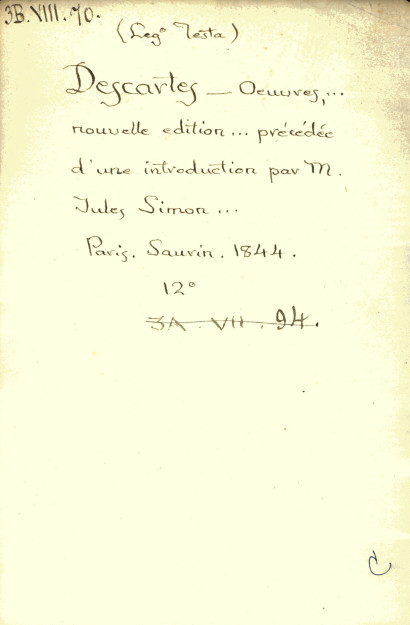 3B.VIII.70.
(Leg° Testa)
Descartes — Oeuvres,...
nouvelle edition... précédée
d'une introduction par M.
Jules Simon...
Paris. Sauvin. 1844.
12°
3A. VII. 94.
C